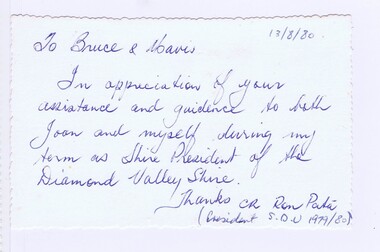 13/8/80
To Bruce & Mavis
In appreciation of your
assistance and guidence to both
Joan and myself during my
term as Shire President of the
Diamond Valley Shire.
Thanks CR Ron
(President S.D.V 1979/80)